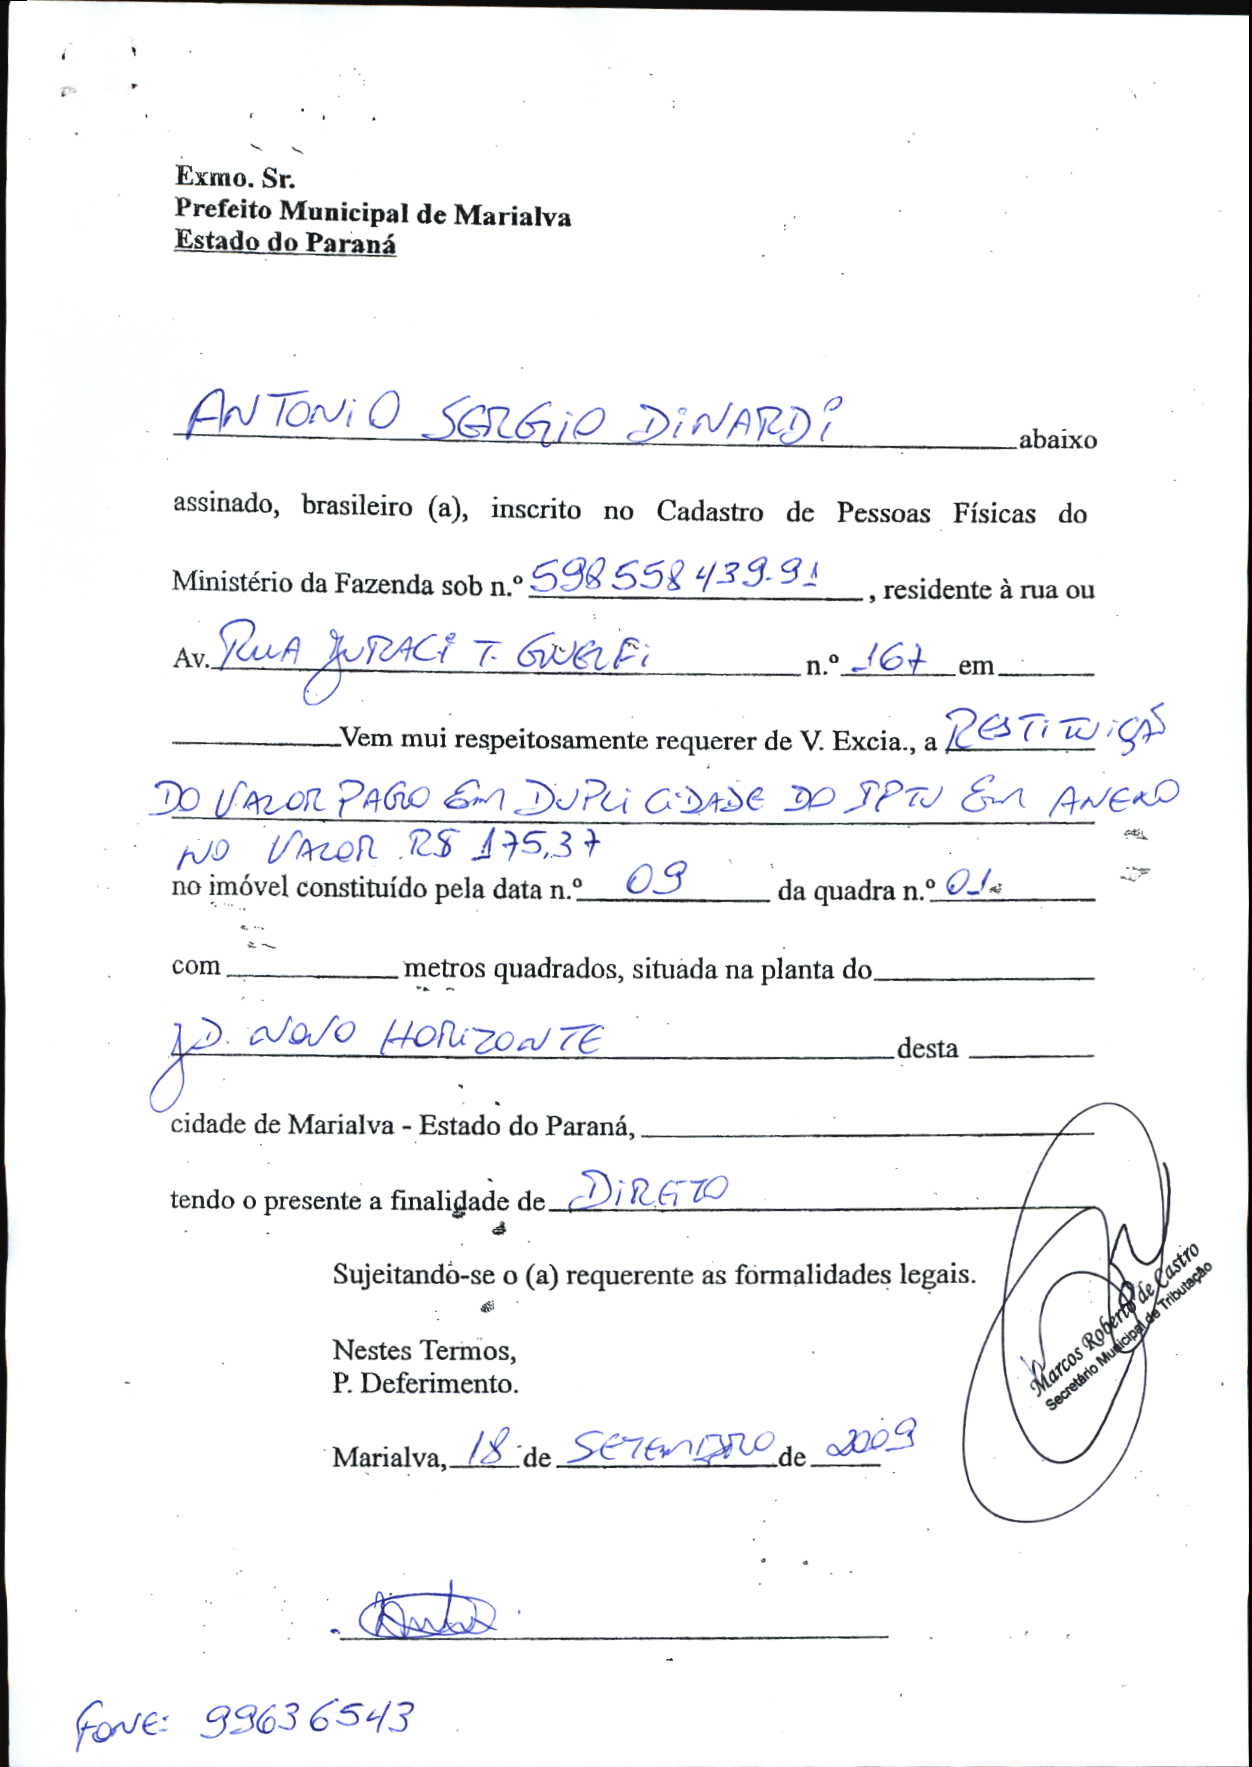 Exmo. Sr.
Prefeito Municipal de Marialva
Estado do Paraná
ANTONIO SERGIO DINARDI abaixo
assinado, brasileiro (a), inscrito no Cadastro de Pessoas Físicas do
Ministério da Fazenda sob n.º 598558439-91, residente à rua ou
Av. RUA JURACI T. GUELFI n.º 167 em
Vem mui respeitosamente requerer de V. Excia., a RESTITUIÇÃO
DO VALOR PAGO EM DUPLICIDADE DO IPTU EM ANEXO
NO VALOR R$ 175,37
no imóvel constituído pela data n.º 09 da quadra n.º 01
com metros quadrados, situada na planta do
JD. NOVO HORIZONTE desta
cidade de Marialva - Estado do Paraná,
tendo o presente a finalidade de DIRETO
Sujeitando-se o (a) requerente as formalidades legais.
Nestes Termos,
P. Deferimento.
Marcos Roberto de Castro
Secretário Municipal de Tributação
Marialva, 18 de SETEMBRO de 2009
FONE: 99636543